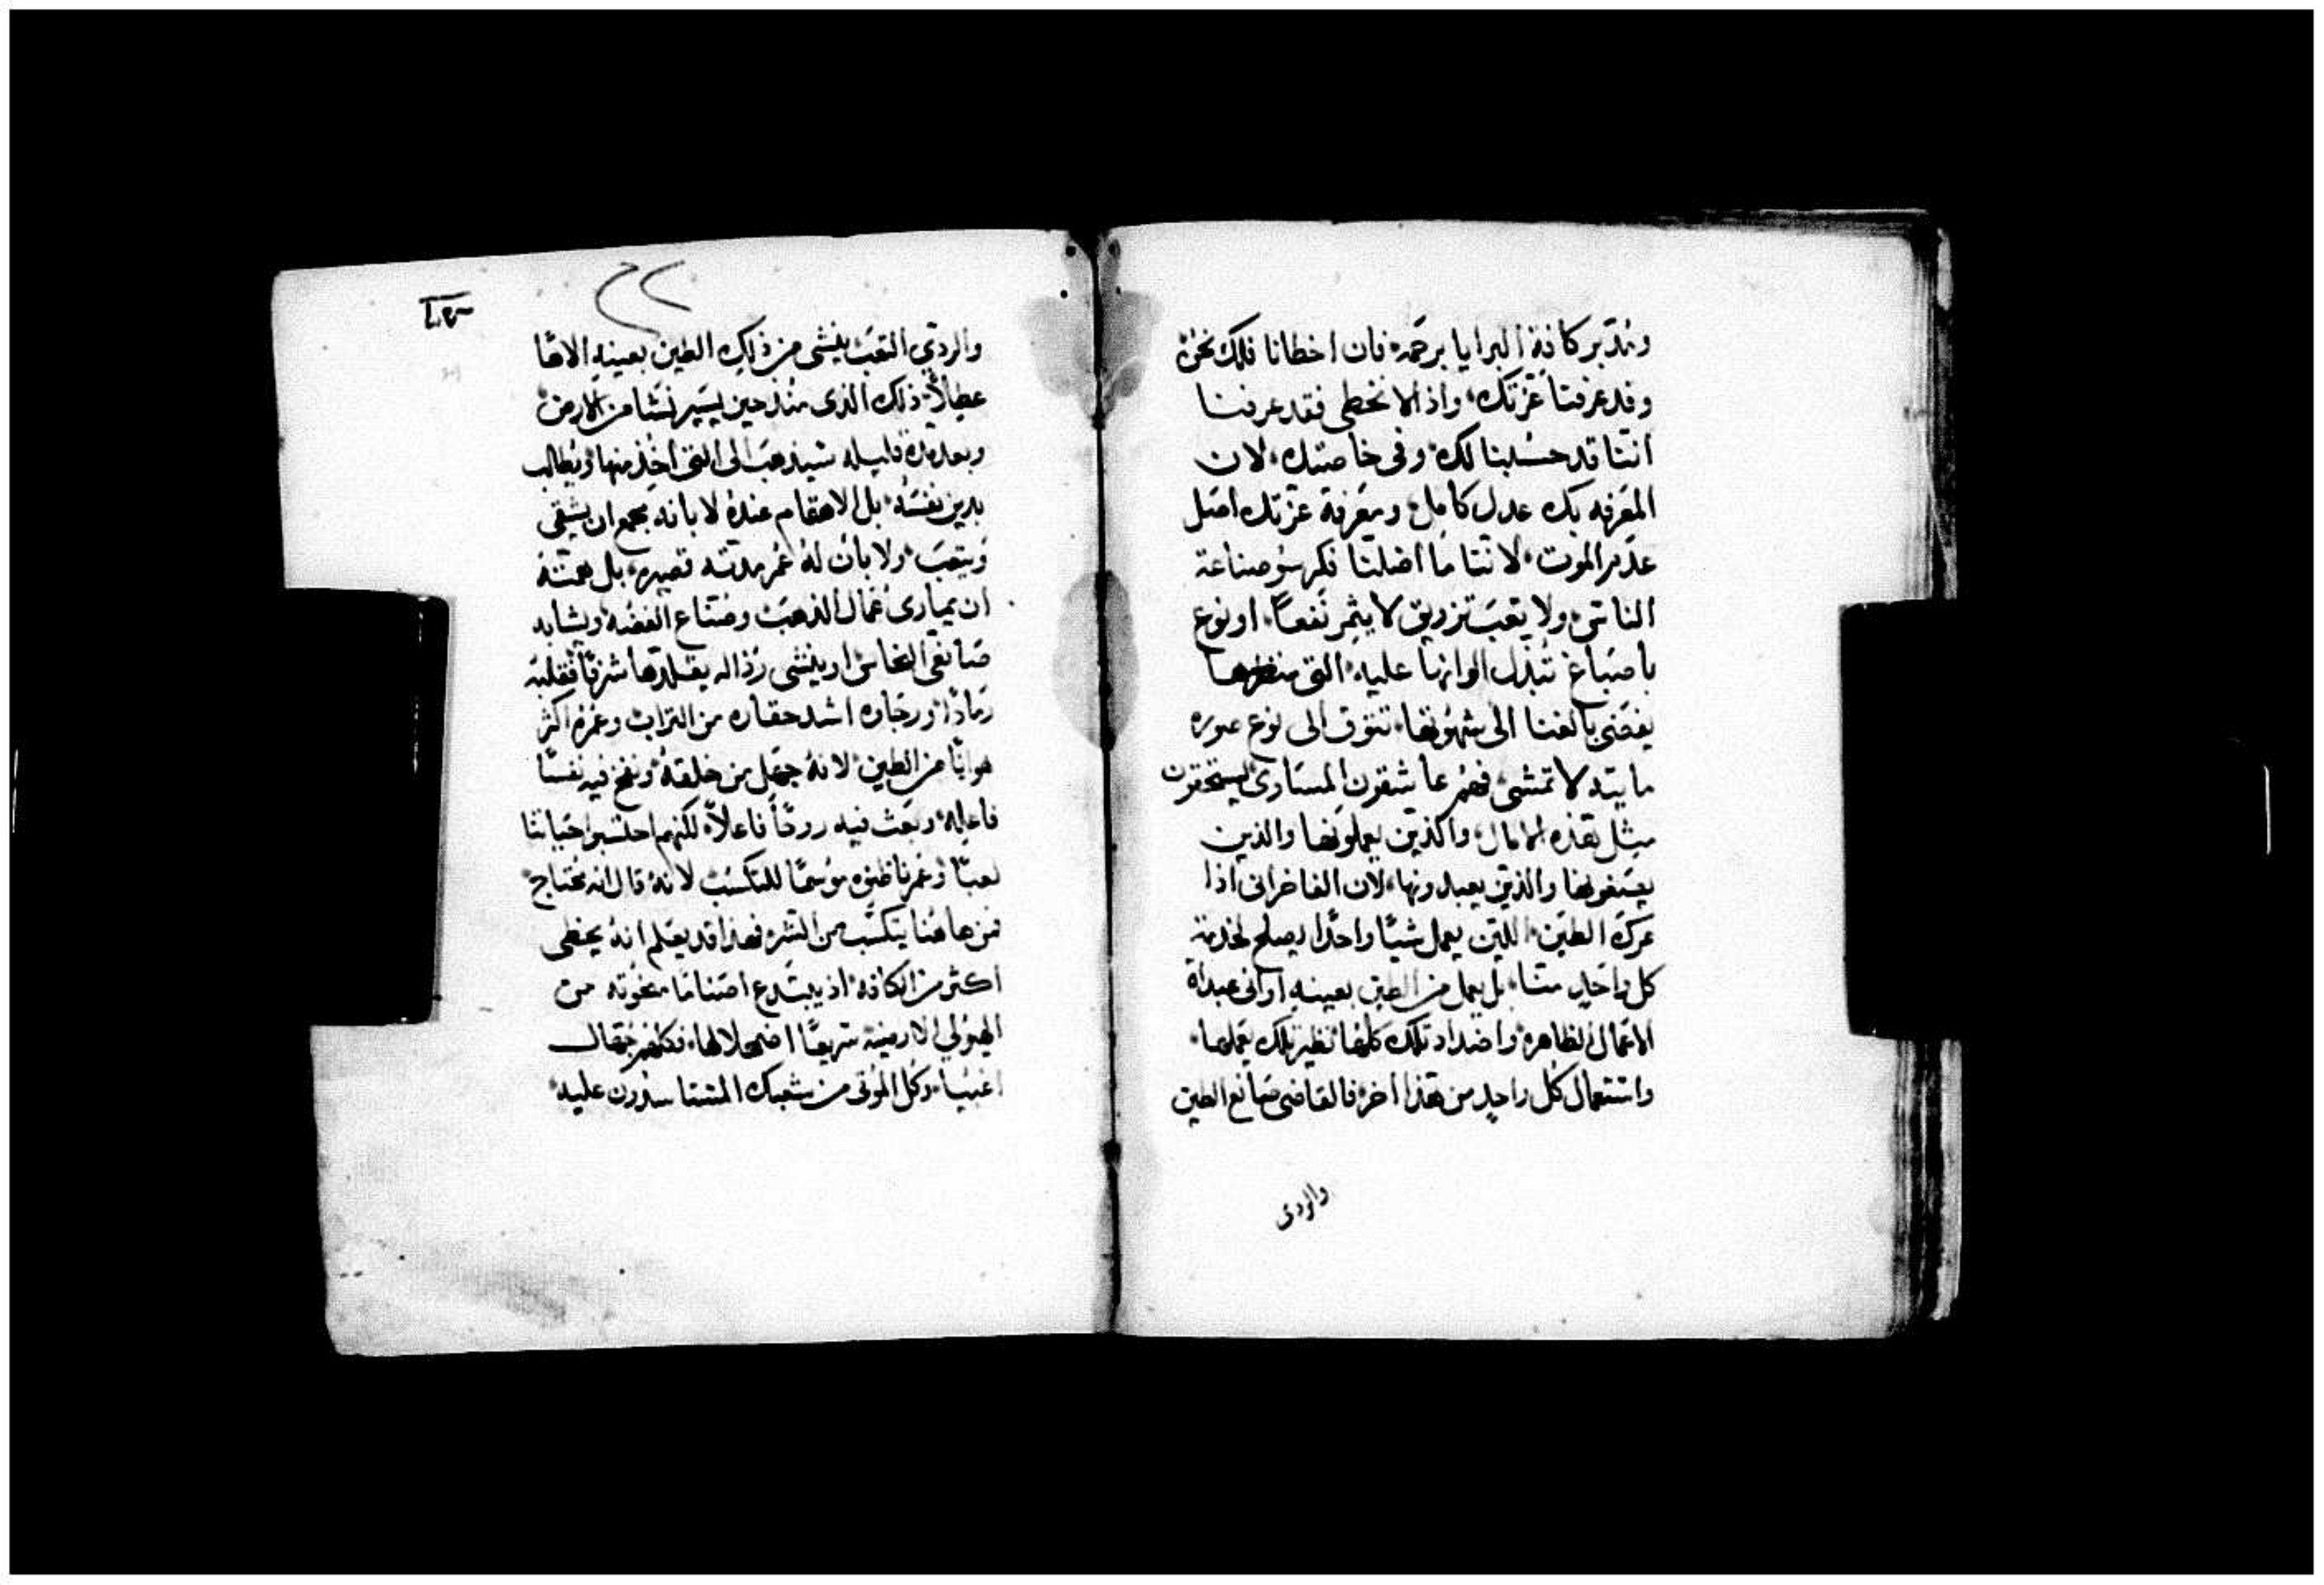 وتدبر كافة البرايا برحمه فان اخطانا فلك نحن
وقد عرفنا عزتك واذ الا نخطى فقد عرفنا
اننا قد حسبنا لك وفى خاصتك لان
المعرفه بك عدل كامل ومعرفة عزتك اصل
عدم الموت لاننا ما اضلنا فكر سو صناعة
الناس ولا تعب تزويق لا يثمر نفعًا او نوع
باصباغ تبدل الوانها عليه التى منظرها
يفضى بالغنا الى شهوتها تتوق الى نوع صوره
مايته لا تمشى فهم عاشقون المساوى يستحقون
مثل هذه الامال والذين يعملونها والذين
يصنعونها والذين يعبدونها لان الفاخرانى اذا
عرك الطين اللين يعمل شيًا واحدًا يصلح لخدمة
كل واحدٍ منا بل يعمل من الطين بعينه اوانى عبداة
الاعمال الظاهره واضداد تلك كلها نظير تلك يعملها
واستعمال كل واحدٍ من هذا اخر فالقاضى صانع الطين
والردى
والردي التعب ينشى من ذلك الطين بعينه الاهًا
عطالاً ذلك الذى منذ حين يسير نشا من الارض
وبعد مدة قليله سيذهب الى التى اخذ منها ويطالب
بدين نفسه بل الاهتمام عنده لا بانه مجمع ان يشقى
ويتعب ولا بان له عمر مدته قصيره بل همته
ان يبارى عمال الذهب وصناع الفضه ويشابه
صانعى النحاس او ينشى رذاله يقلدها شرفًا فقلبه
رمادًا ورجاوه اشد حقاره من التراب وعمره اكثر
هوانًا من الطين لانه جهل من خلقه ونفخ فيه نفسًا
فاعليه وبعث فيه روحًا فاعلاً لكنهم احتسبوا حياتنا
لعبًا وعمرنا ظنوه موسمًا للتكسب لانه قال انه يحتاج
من هاهنا يتكسب من الشر فهذا قد يعلم انه يخطى
اكثر من الكافه اذ يبتدع اصنامًا منحوته من
الهيولي الارضيه سريعًا اضمحلالها فكلهم جهال
اغبيا وكل الموتى من شعبك المستاسدون عليه